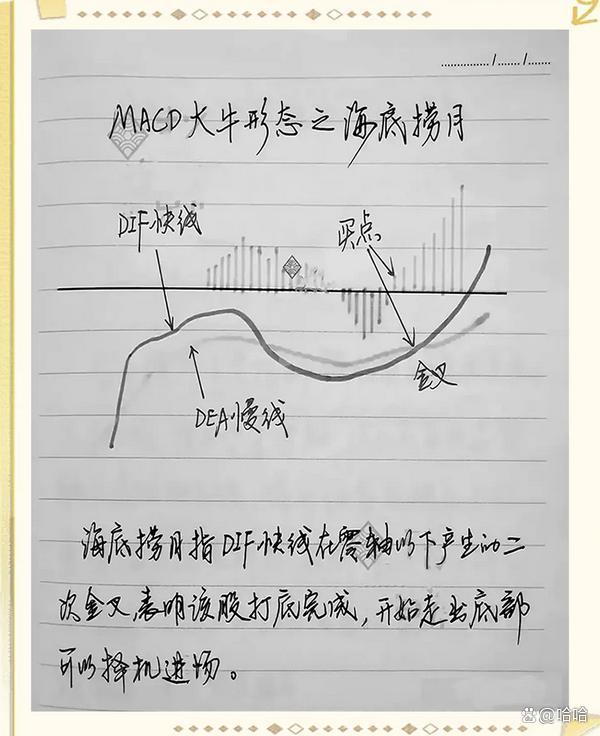 ............../......./.......
MACD大牛形态之海底捞月
DIF快线
买点
金叉
DEA慢线
海底捞月指DIF快线在零轴以下产生的二
次金叉,表明该股打底完成,开始走出底部
可以择机进场。
@哈哈